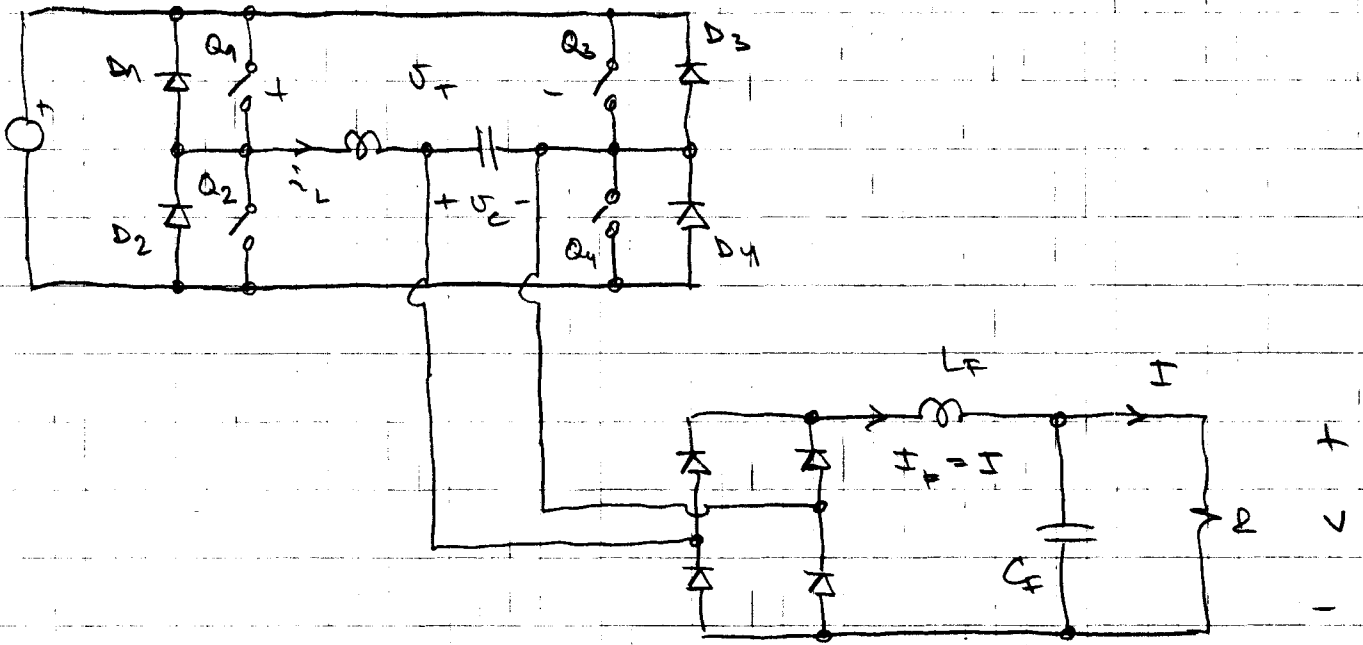 D1
Q1
+
v_T
-
Q3
D3
+
D2
Q2
i_L
+ v_c -
Q4
D4
L_F
I
I_F = I
C_F
R
+
V
-